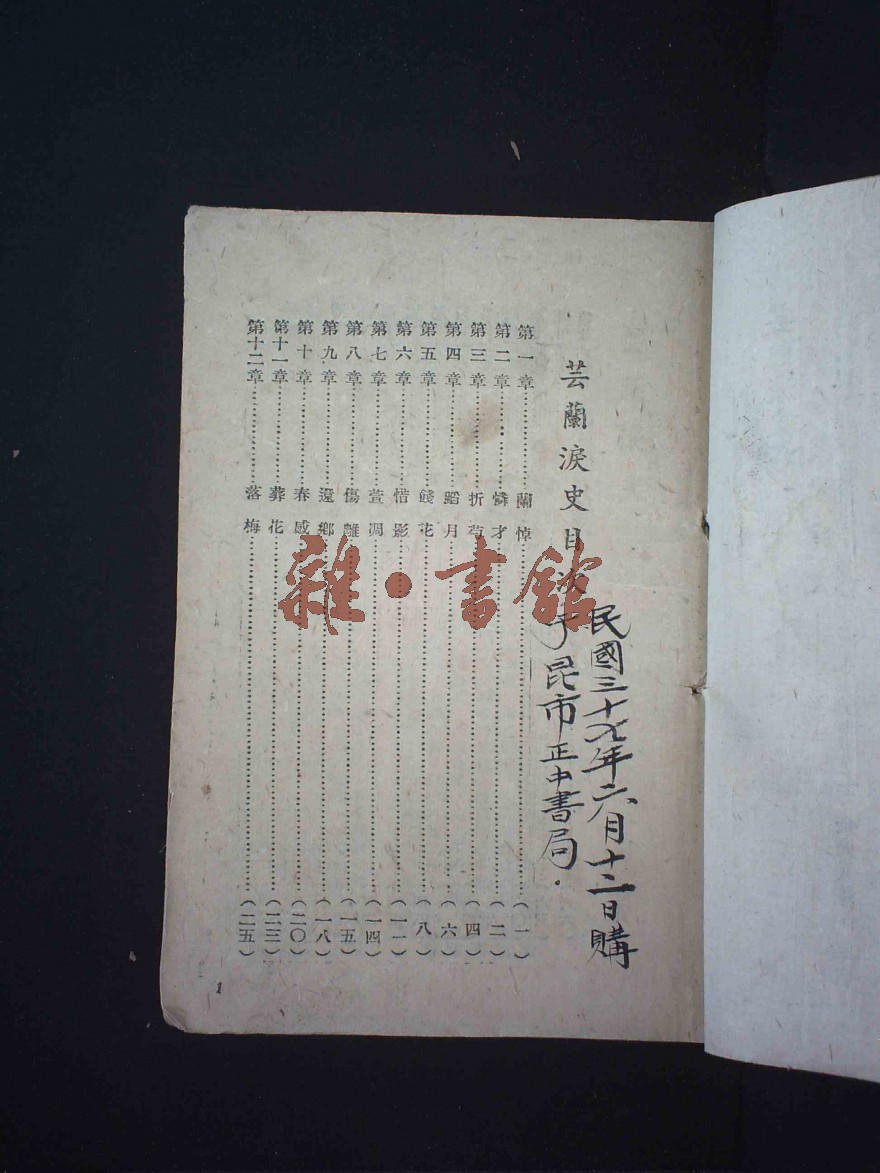 民國三十七年六月十二日購
于昆市正中書局.
芸蘭淚史目次
第一章……………蘭悼……………(一)
第二章……………憐才……………(二)
第三章……………折……………(四)
第四章……………蹈月……………(六)
第五章……………餞花……………(八)
第六章……………惜影……………(一一)
第七章……………萱凋……………(一四)
第八章……………傷離……………(一五)
第九章……………還鄉……………(一八)
第十章……………春感……………(二〇)
第十一章……………葬花……………(二三)
第十二章……………落梅……………(二五)
1
雜·書館